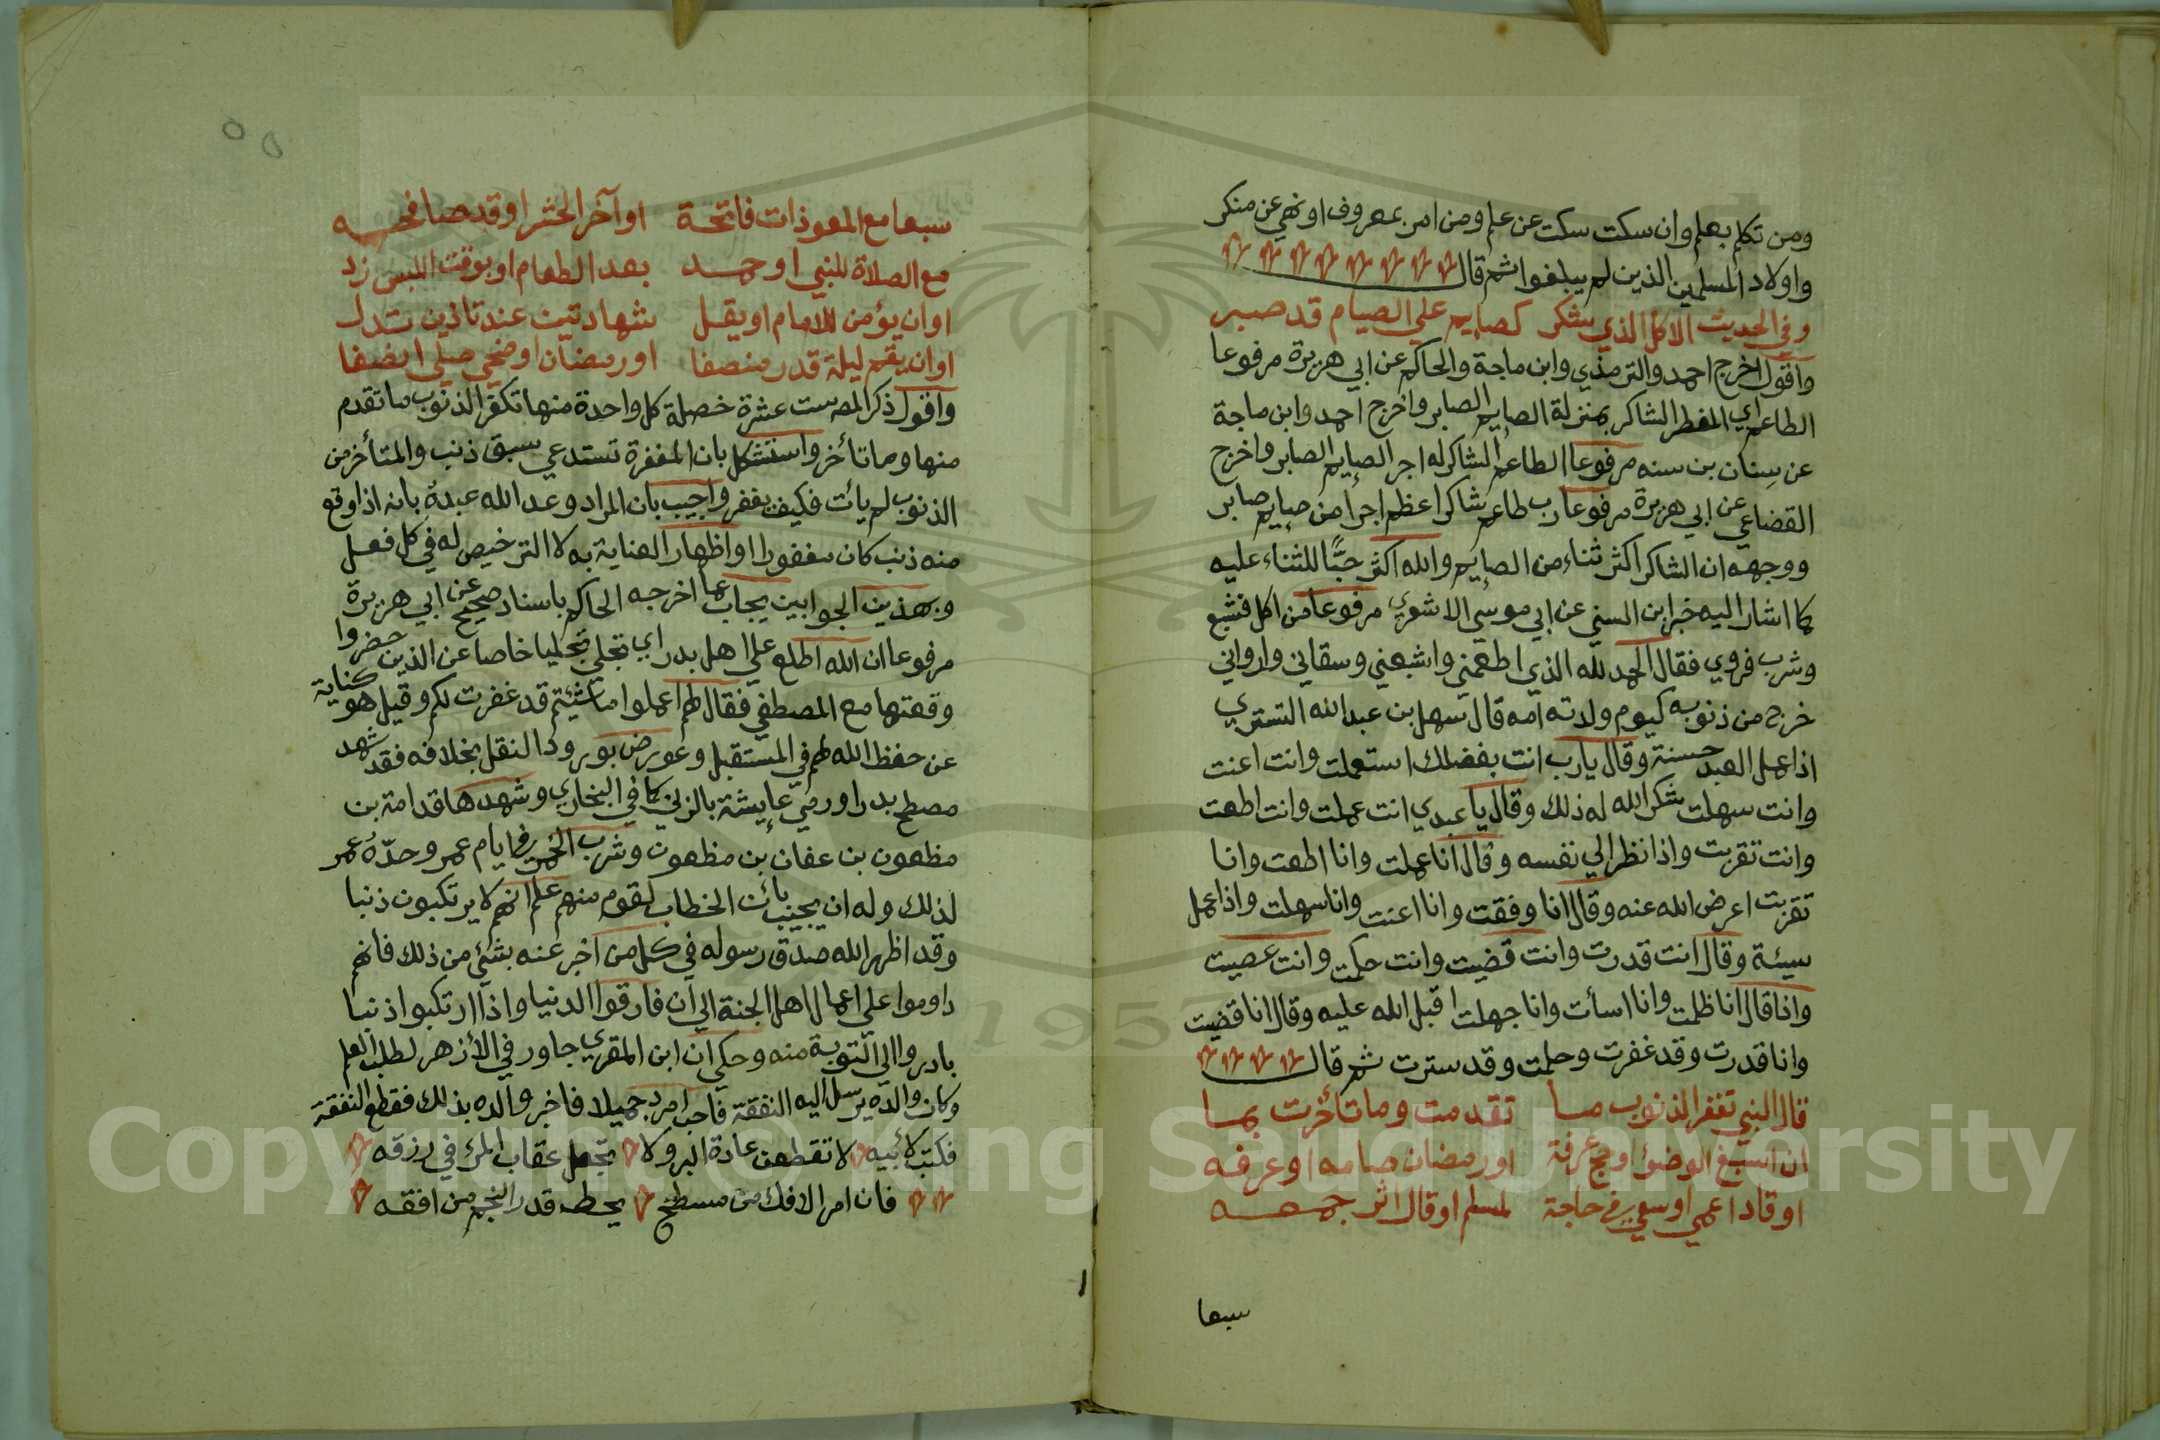 ومن تكلم بعلم وان سكت سكت عن علم ومن امر بمعروف او نهي عن منكر
واولاد المسلمين الذين لم يبلغوا ثم قال
وفي الحديث الاكل الذي شكر كصايم علي الصيام قد صبر
واقول اخرج احمد والترمذي وابن ماجة والحاكم عن ابي هريرة مرفوعا
الطاعم اي المفطر الشاكر بمنزلة الصايم الصابر واخرج احمد وابن ماجة
عن سنان بن سنه مرفوعا الطاعم الشاكر له اجر الصايم الصابر واخرج
القضاعي عن ابي هريرة مرفوعا رب طاعم شاكر اعظم اجرا من صايم صابر
ووجهه ان الشاكر اكثر ثناء من الصايم والله اكثر حبًّا للثناء عليه
كما اشار اليه خبر ابن السني عن ابي موسي الاشعري مرفوعا من اكل فشبع
وشرب فروي فقال الحمد لله الذي اطعمني واشبعني وسقاني وارواني
خرج من ذنوبه كيوم ولدته امه قال سهل بن عبد الله التستري
اذا عمل العبد حسنة وقال يارب انت بفضلك استعملت وانت اعنت
وانت سهلت شكر الله له ذلك وقال يا عبدي انت عملت وانت اطعت
وانت تقربت واذا نظر الي نفسه وقال انا عملت وانا اطعت وانا
تقربت اعرض الله عنه وقال انا وفقت وانا اعنت وانا سهلت واذا عمل
سيئة وقال انت قدرت وانت قضيت وانت حكمت وانت عصيت
واذا قال انا ظلمت وانا اسأت وانا جهلت اقبل الله عليه وقال انا قضيت
وانا قدرت وقد غفرت وحلمت وقد سترت ثم قال
قال النبي تغفر الذنوب ما تقدمت وما تأخرت بما
ان اسبغ الوضوء او حج عرفة او رمضان صامه او عرفه
او قاد اعمي او سعي في حاجة لمسلم او قال اثر جمعه
سبعا
سبعا مع المعوذات فاتحة او آخر الحشر او قد صافحه
مع الصلاة للنبي او حمد بعد الطعام او بوقت اللبس زد
او ان يؤمن للامام او يقل شهادتين عند تاذين تدل
او ان يقم ليلة قدر منصفا او رمضان او ضحي صلي ايضفا
واقول ذكر المص ست عشرة خصلة كل واحدة منها تكفر الذنوب ما تقدم
منها وما تأخر واستشكل بان المغفرة تستدعي سبق ذنب والمتأخر من
الذنوب لم يأت فكيف يغفر واجيب بان المراد وعد الله عبده بانه اذا وقع
منه ذنب كان مغفورا او اظهار العناية به لا الترخيص له في كل فعل
وبهذين الجوابين يجاب عما اخرجه الحاكم باسناد صحيح عن ابي هريرة
مرفوعا ان الله اطلع علي اهل بدر اي تجلي تجليا خاصا عن الذين حضروا
وقعتها مع المصطفي فقال لهم اعملوا ما شئتم قد غفرت لكم وقيل هو كناية
عن حفظ الله لهم في المستقبل وعورض بورود النقل بخلافه فقد شهد
مصطح بدرا ورمي عايشة بالزني كما في البخاري وشهدها قدامة بن
مظعون بن عفان بن مظعون وشرب الخمر في ايام عمر وحدّه عمر
لذلك وله ان يجيب بأن الخطاب لقوم منهم علم انهم لا يرتكبون ذنبا
وقد اظهر الله صدق رسوله في كل من اخبر عنه بشئ من ذلك فانهم
داوموا علي اعمال اهل الجنة الي ان فارقوا الدنيا واذا ارتكبوا ذنبا
بادروا الي التوبة منه وحكي ان ابن المقري جاور في الازهر لطلب العلم
وكان والده يرسل اليه النفقة فاحب امرد جميلا فاخبر والده بذلك فقطع النفقة
فكتب لأبيه لا تقطعن عادة البر ولا تجعل عقاب المرء في رزقه
فان امر الافك من مسطح يحط قدر النجم من افقه